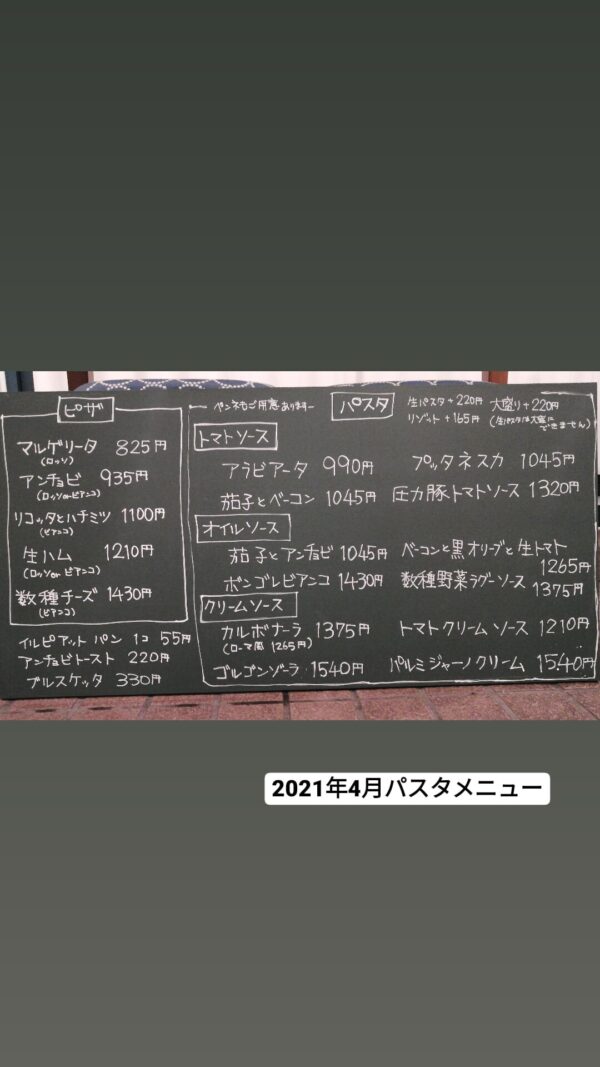 ピザ
マルゲリータ 825円
(ロッソ)
アンチョビ 935円
(ロッソorビアンコ)
リコッタとハチミツ 1100円
(ビアンコ)
生ハム 1210円
(ロッソor ビアンコ)
数種チーズ 1430円
(ビアンコ)
イルピアット パン 1コ 55円
アンチョビトースト 220円
ブルスケッタ 330円
ペンネもご用意あります
パスタ
生パスタ+220円 大盛り+220円
リゾット+165円 (生パスタは大盛に
できません)
トマトソース
アラビアータ 990円 プッタネスカ 1045円
茄子とベーコン 1045円 圧力豚トマトソース 1320円
オイルソース
茄子とアンチョビ 1045円 ベーコンと黒オリーブと生トマト
1265円
ボンゴレビアンコ 1430円 数種野菜ラグーソース 1375円
クリームソース
カルボナーラ 1375円 トマトクリームソース 1210円
(ローマ風 1265円)
ゴルゴンゾーラ 1540円 パルミジャーノクリーム 1540円
2021年4月パスタメニュー